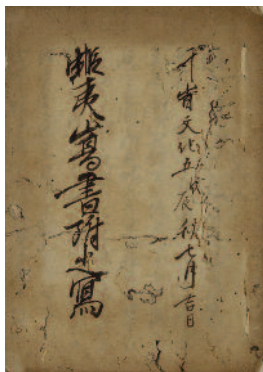 于時文化五戊辰秋七月吉日
蝦夷嶌書附之寫